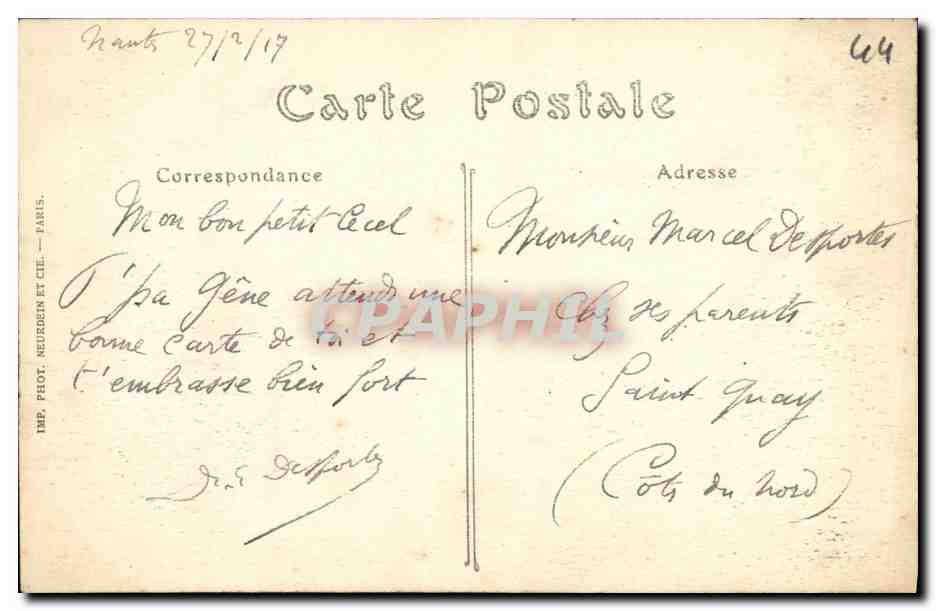 Nants 27/2/17
44
Carte Postale
Correspondance
Mon bon petit Cecel
T'pa Gêne attends une
bonne carte de toi et
t'embrasse bien fort
Desportes
Adresse
Monsieur Marcel Desportes
chez ses parents
Saint Quay
(Côts du Nord)
IMP. PHOT. NEURDEIN ET CIE. — PARIS.
CPAPHIL